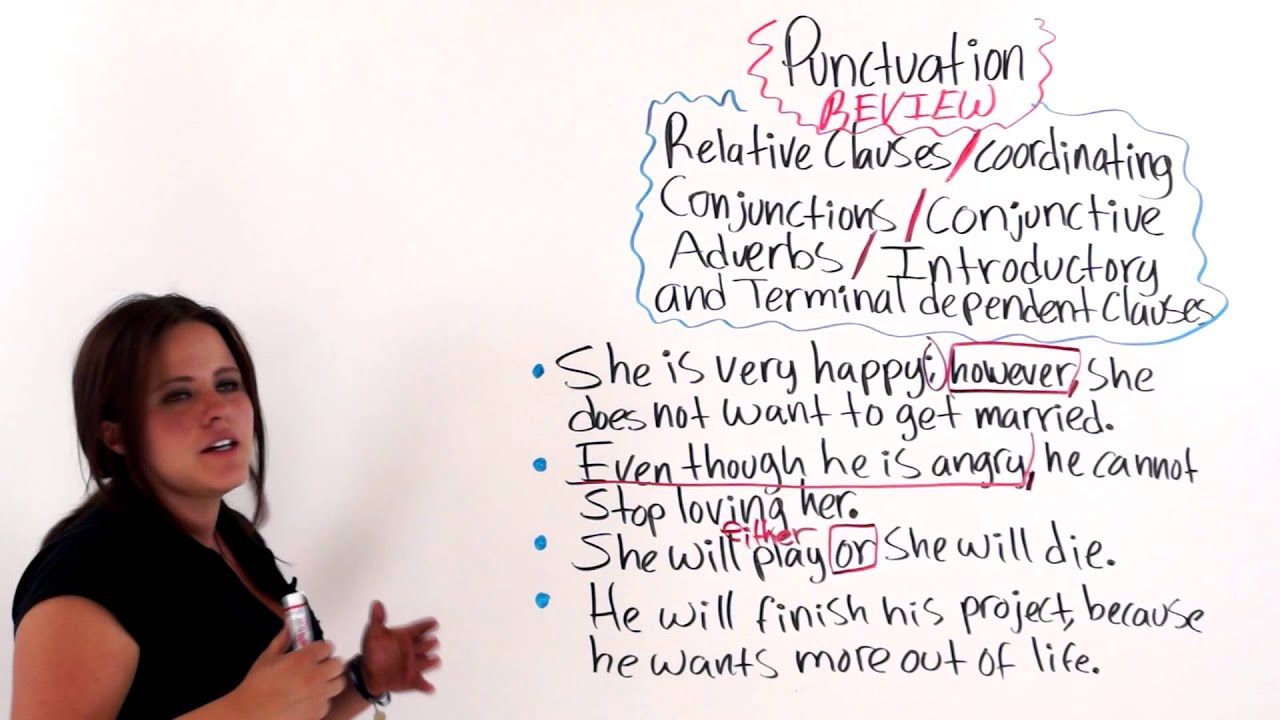 Punctuation
REVIEW
Relative Clauses/coordinating
Conjunctions/Conjunctive
Adverbs/Introductory
and Terminal dependent Clauses
• She is very happy; however, she
does not want to get married.
• Even though he is angry, he cannot
stop loving her.
either
• She will play or she will die.
• He will finish his project, because
he wants more out of life.